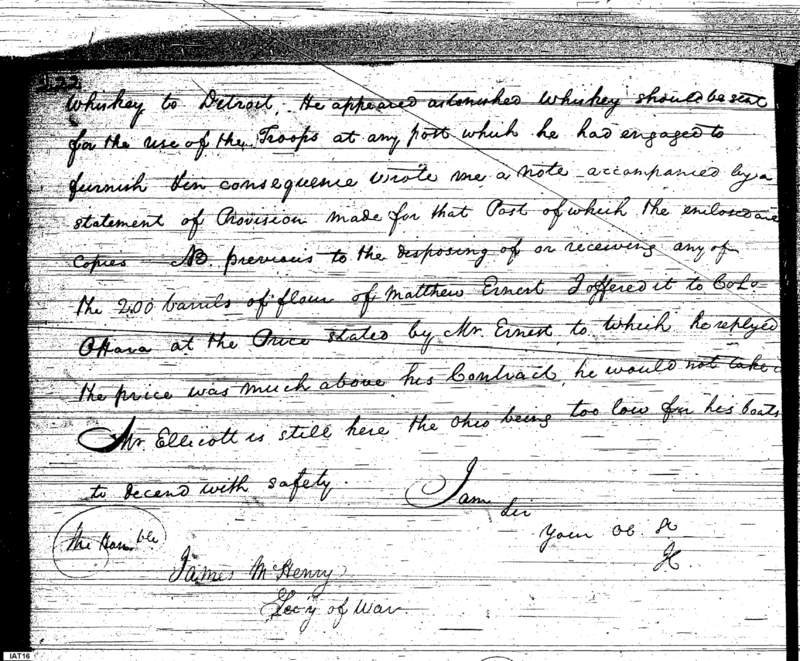 222
Whiskey to Detroit, He appeared astonished Whiskey should be sent
for the use of the Troops at any post which he had engaged to
furnish & in consequence wrote me a note accompanied by a
statement of Provision made for that Post of which the enclosed are
copies NB. previous to the disposing of or receiving any of
the 200 barrels of flour of Matthew Ernest I offered it to Colo
OHara at the Price stated by Mr. Ernest, to which he replyed
the price was much above his Contract, he would not take
Mr. Ellicott is still here the Ohio being too low for his boats
to decend with safety.
I am
Sir
Your Ob St
The Honble
James McHenry
Secy of War
IAT16